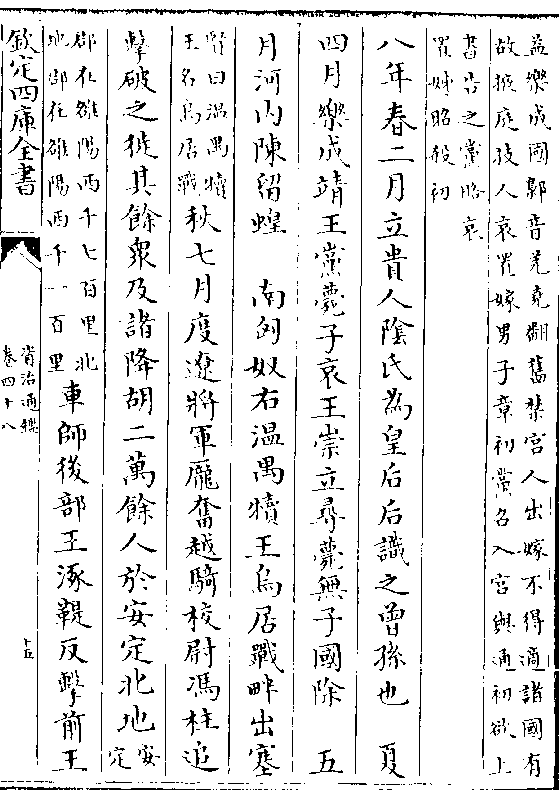 益樂成國郭音羌堯翻舊禁宮人出嫁不得適諸國有
故掖庭技人哀置嫁男子章初黨名入宮與通初欲上
書告之黨賂哀
置姊昭殺初
八年春二月立貴人隂氏為皇后后識之曾孫也　夏
四月樂成靖王黨薨子哀王崇立尋薨無子國除　五
月河内陳留蝗　南匈奴右温禺犢王烏居戰畔出塞
賢曰温禺犢
王名烏居戰
秋七月度遼將軍龐奮越騎校尉馮柱追
擊破之徙其餘衆及諸降胡二萬餘人於安定北地
安
定
郡在雒陽西千七百里北
地郡在雒陽西千一百里
車師後部王涿鞮反擊前王
欽定四庫全書
資治通鑑
卷四十八
十五